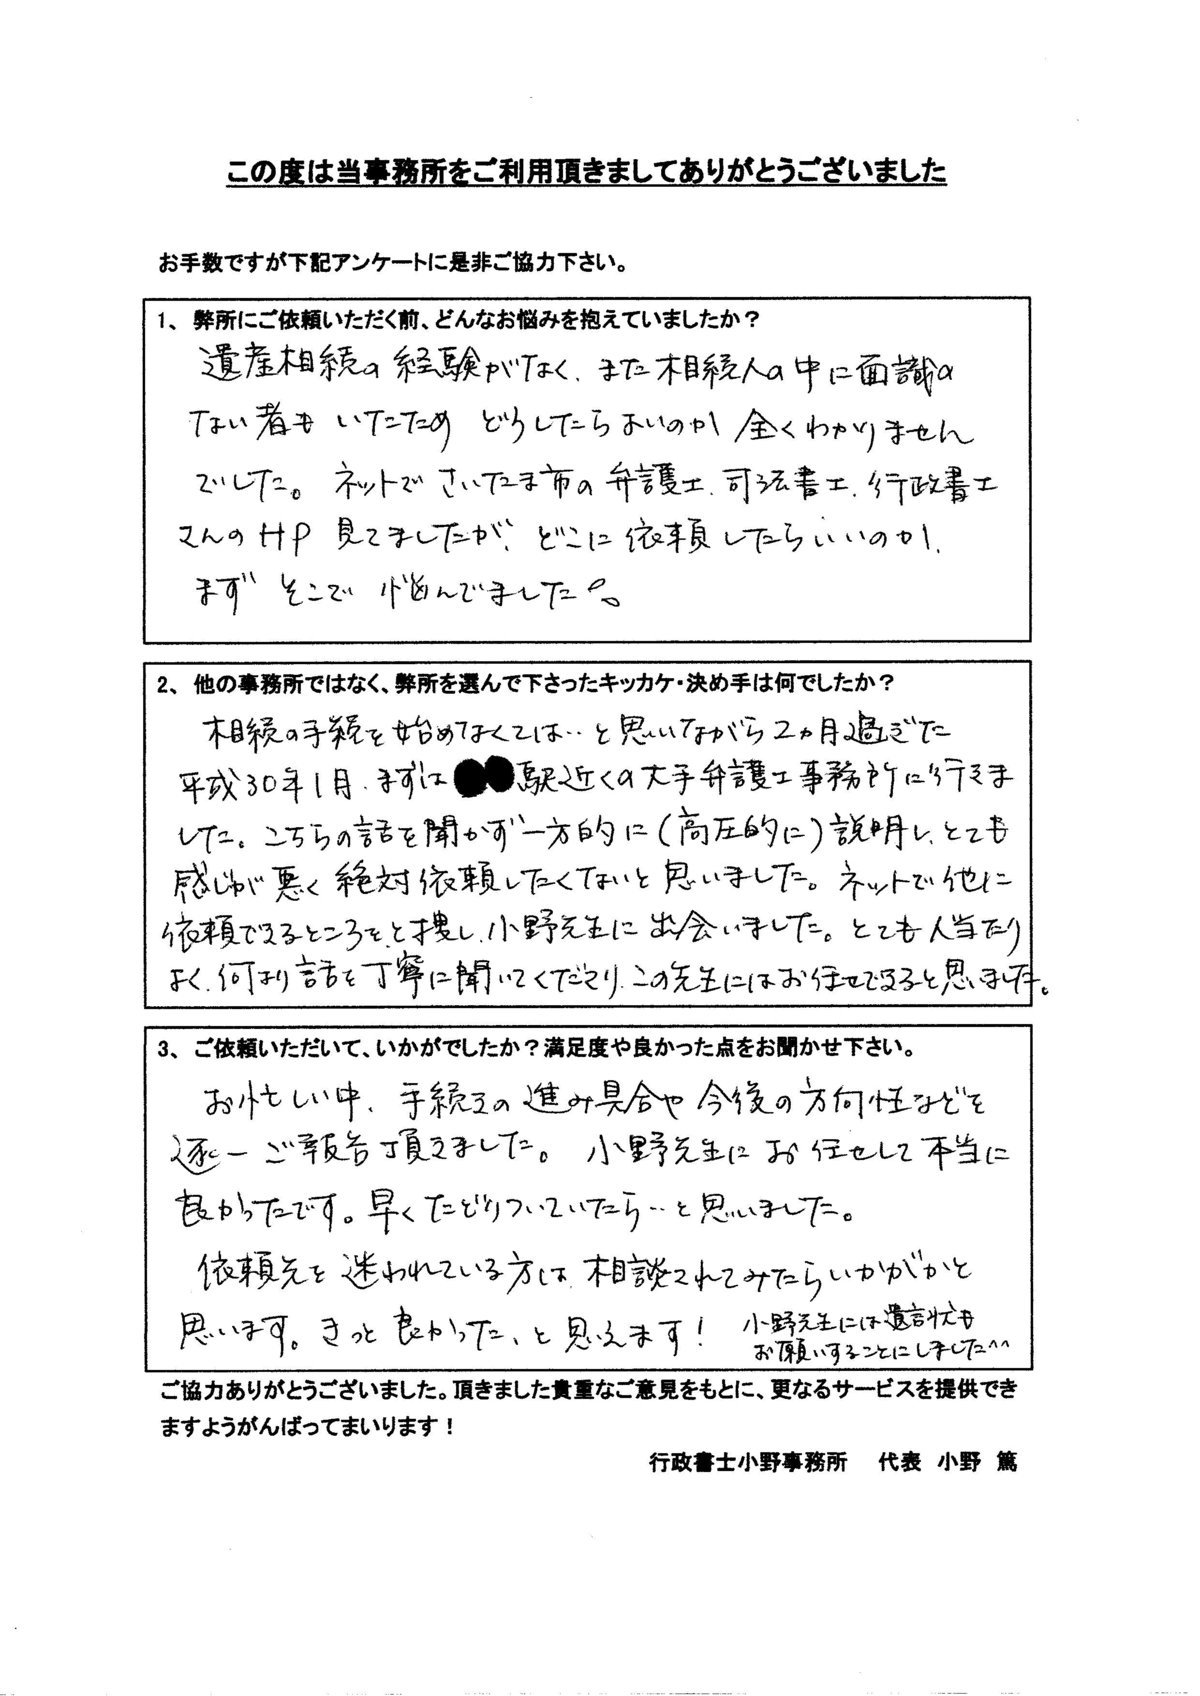 この度は当事務所をご利用頂きましてありがとうございました
お手数ですが下記アンケートに是非ご協力下さい。
1、弊所にご依頼いただく前、どんなお悩みを抱えていましたか？
遺産相続の経験がなく、また相続人の中に面識の
ない者もいたため どうしたらよいのか 全くわかりません
でした。ネットで さいたま市の 弁護士、司法書士、行政書士
さんのHP 見てましたが、どこに依頼したらいいのか、
まず そこで 悩んでました。
2、他の事務所ではなく、弊所を選んで下さったキッカケ・決め手は何でしたか？
相続の手続を始めなくては‥と思いながら2ヵ月過ぎた
平成30年1月、まずは●●駅近くの大手弁護士事務所に行きま
した。こちらの話を聞かず一方的に(高圧的に)説明し、とても
感じが悪く 絶対依頼したくないと思いました。ネットで他に
依頼できるところを、と捜し、小野先生に出会いました。とても人当たり
よく、何より話を丁寧に聞いてくださり、この先生にはお任せできると思いました。
3、ご依頼いただいて、いかがでしたか？満足度や良かった点をお聞かせ下さい。
お忙しい中、手続きの進み具合や今後の方向性などを
逐一ご報告頂きました。小野先生にお任せして本当に
良かったです。早くたどりついていたら‥と思いました。
依頼先を迷われている方は、相談されてみたらいかがかと
思います。きっと良かった、と思えます！
小野先生には遺言状も
お願いすることにしました^^
ご協力ありがとうございました。頂きました貴重なご意見をもとに、更なるサービスを提供でき
ますようがんばってまいります！
行政書士小野事務所　代表　小野　篤